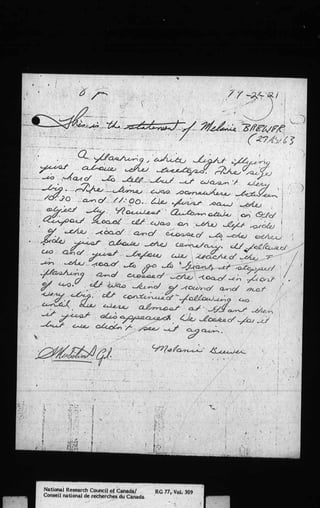 This is the statement of Melanie BREWER
A flashing, white light flying
just above the treetops. The size
is hard to tell but it wasn't very
big. The time was somewhere between
10:30 and 11:00. We first saw the
object by Nowest Automotive on Old
Airport Road it was on the left side
of the road and crossed to the other
side just above the cemetary it followed
us and just before we reached the T
in the road to go to Grant it stopped
flashing and crossed the road in front
of us. It was kind of round and not
very big. It continued following us
until we were almost at Grant then
it just disappeared. We looked for it
but we didn't see it again.
Melanie Brewer
National Research Council of Canada/
Conseil national de recherches du Canada
RG 77, Vol. 309